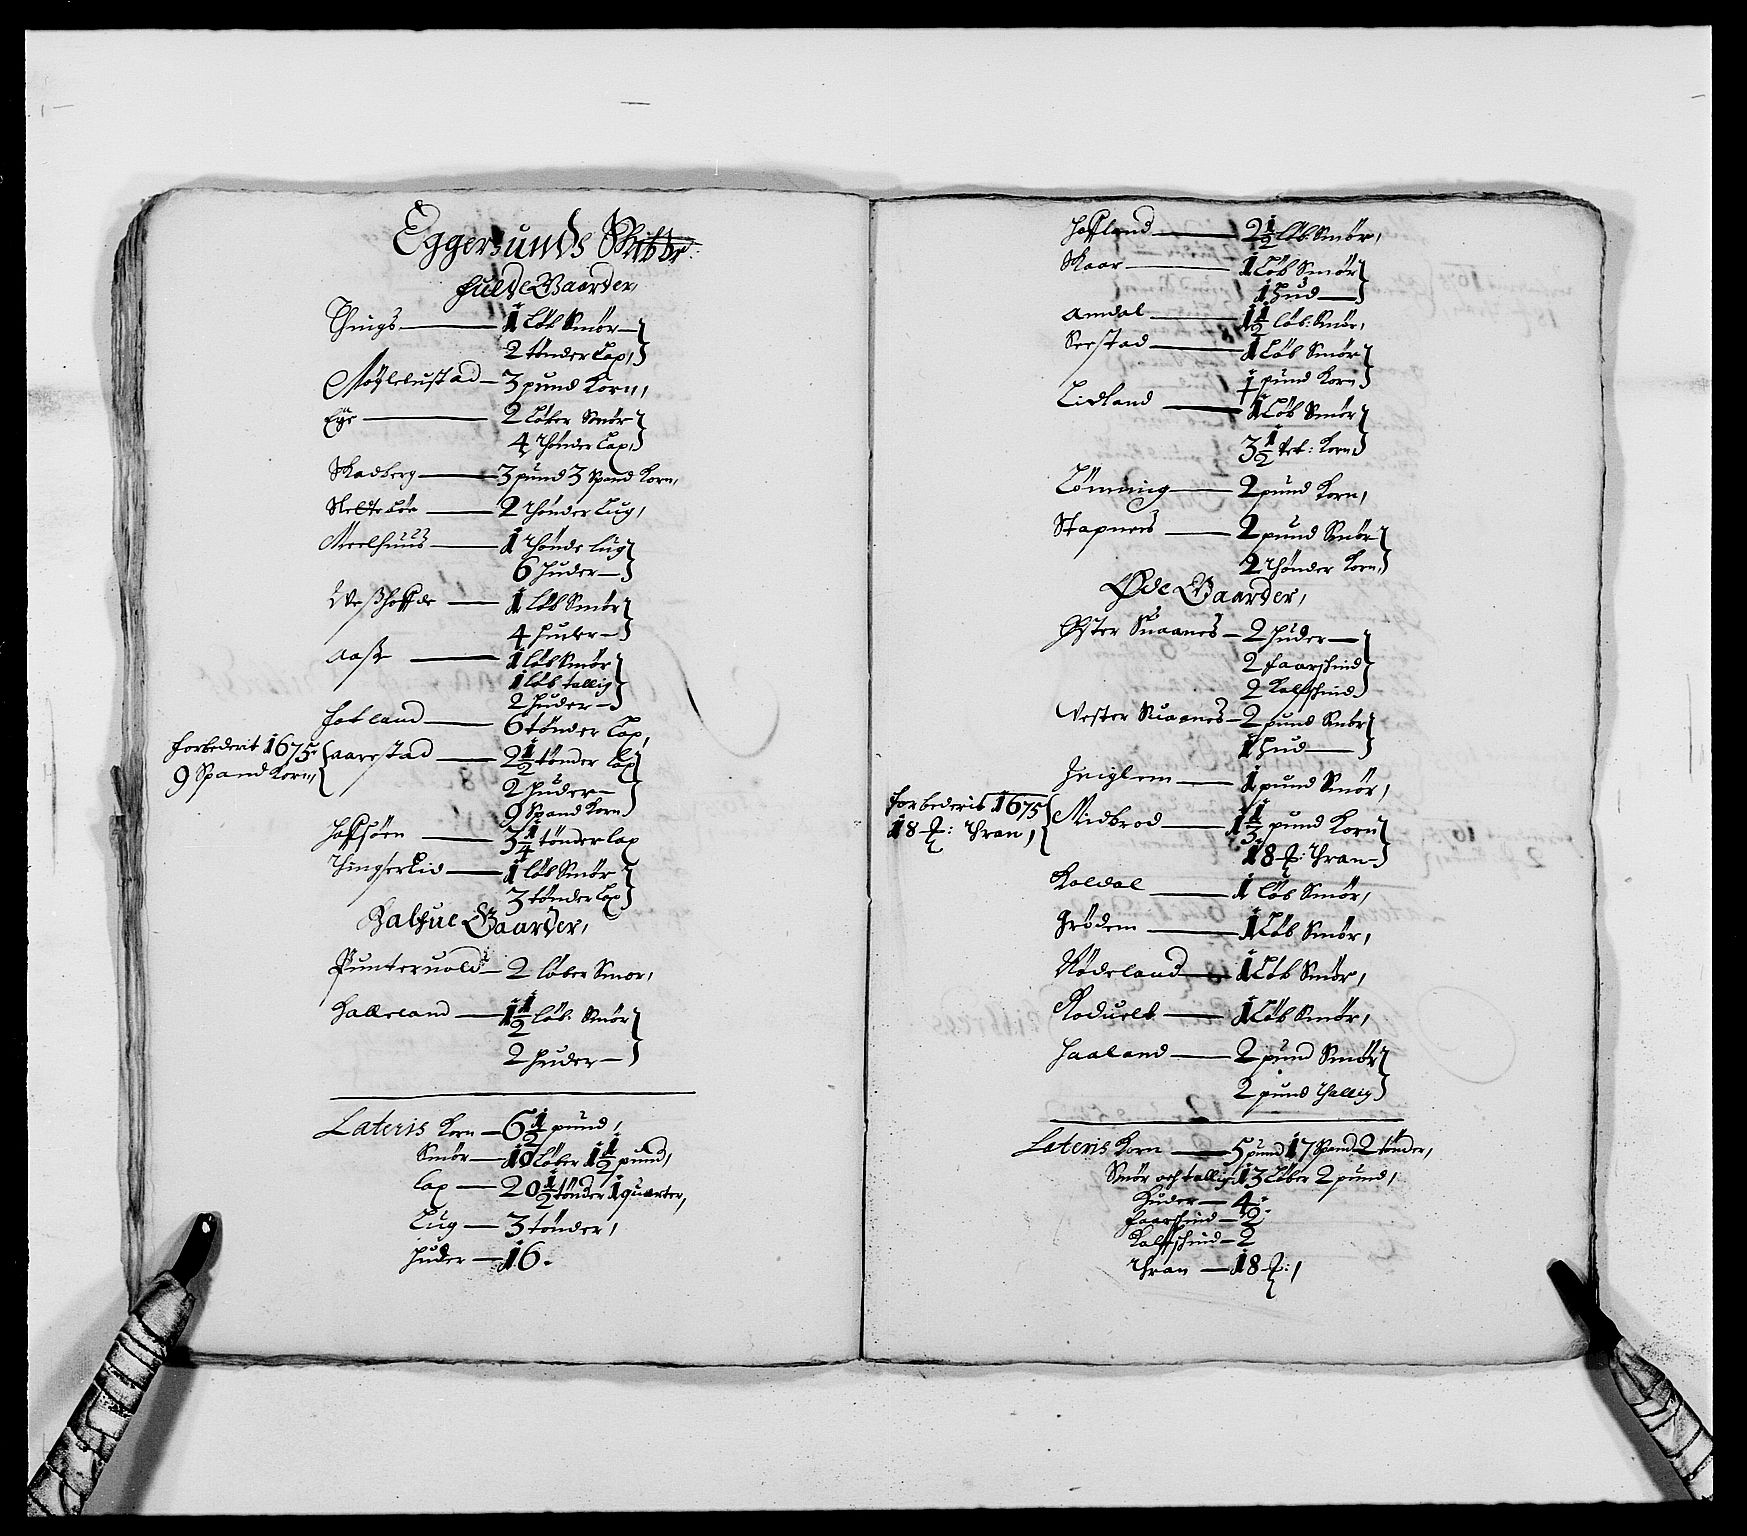 Eggersunds Skibbr:
fulde Gaarder,
Thengs — 1 Løb Smør —
2 tønder Lax,
Nøylebustad — 3 pund Korn,
Eye — 2 Løber Smør
4 Thønder Lax,
Skadberg — 3 pund 3 Spand Korn,
— 2 Thønder Lug,
Meelhuus — 1 Thønde lug
6 Huder —
Veßhoffde — 1 løb Smør
4 Huder —
Aaße — 1 løb Smør
1 løb tallig
2 Huder —
Fotland — 6 tønder Lax,
forbederit 1675
9 Spand Korn,
Aarestad — 2½ tønder lax
2 Huder —
9 Spand Korn
Haffsøen — 3¼ tønder lax
Thingserlid — 1 løb Smør
3 tønder Lax
Halfue Gaarder,
Puntervold — 2 løber Smør,
Halleland — 1½ løb: Smør
2 Huder —
Lateris Korn — 6½ pund,
Smør — 10 Løber 1½ pund,
lax — 20½ tønder 1 quarter,
Lug — 3 tønder,
Huder — 16.
Hoffland — 2½ løb Smør,
Skaar — 1 Løb Smør
1 Hud —
Amdal — 1½ løb: Smør,
Seestad — 1 Løb Smør
1 pund Korn
Lidland — 1 Løb Smør
3½ Korn
Lønning — 2 pund Korn,
Stapnees — 2 pund Smør
2 Thønder Korn,
Øde Gaarder,
Øster Suaanes — 2 Huder —
2 faarskind
2 Kalfskind
Vester Suaanes — 2 pund Smør
1 Hud —
Heiglem — 1 pund Smør,
forbederit 1675
18 ℔: Thran,
Midbrod — 1⅓ pund Korn
18 ℔: Thran —
Koldal — 1 løb Smør,
Grødem — 1 Løb Smør,
Rødeland — 1 Løb Smør,
Roduelt — 1 Løb Smør,
Haaland — 2 pund Smør
2 pund Thallig
Lateris Korn — 5 pund 17 Spand 2 tønder,
Smør och tallig 13 Løber 2 pund,
Huder — 4 -
faarskind — 2 -
Kalfskind — 2
Thran — 18 ℔: /